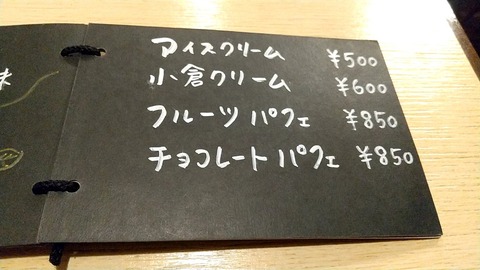 アイスクリーム ¥500
小倉クリーム ¥600
フルーツパフェ ¥850
チョコレートパフェ ¥850